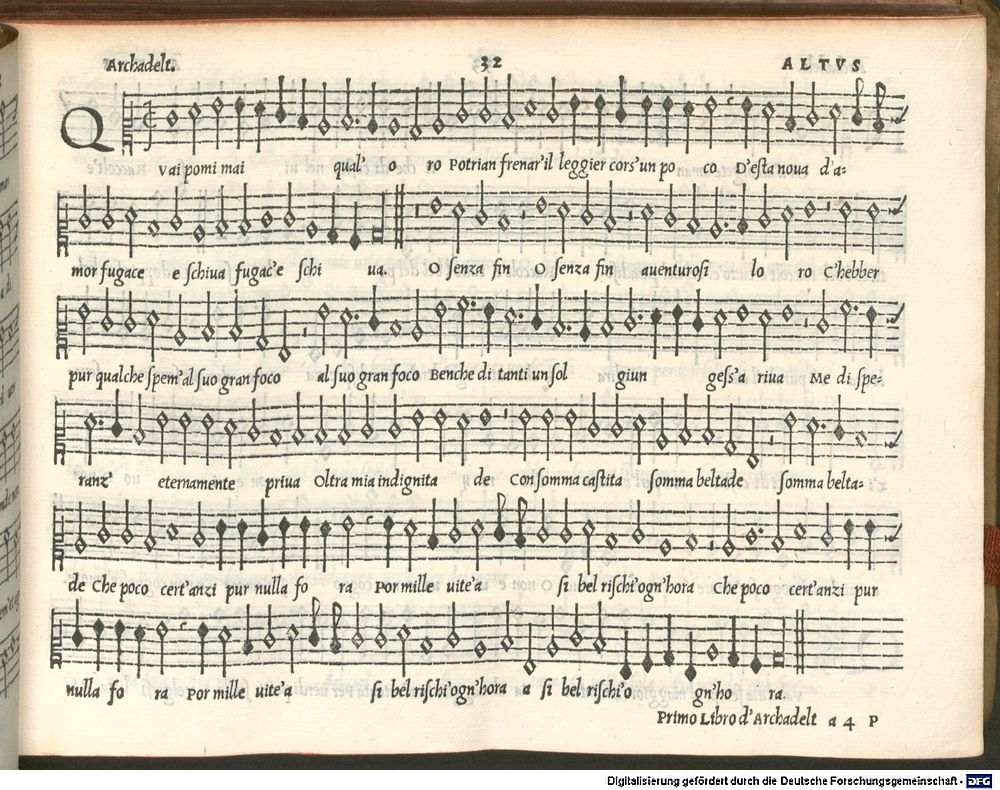 Archadelt. 32 ALTVS
Q
Vai pomi mai qual' o ro Potrian frenar'il leggier cors'un po co D'esta noua d'a-
mor fugace e schiua fugac'e schi ua. O senza fin O senza fin auenturosi lo ro C'hebber
pur qualche spem'al suo gran foco al suo gran foco Benche di tanti un sol giun gess'a riua Me di spe-
ranz' eternamente priua Oltra mia indignita de Con somma castita somma beltade somma belta-
de Che poco cert'anzi pur nulla fo ra Por mille uite'a si bel rischi'ogn'hora Che poco cert'anzi pur
nulla fo ra Por mille uite'a si bel rischi'ogn'hora a si bel rischi'o gn'ho ra.
Primo Libro d'Archadelt a 4 P
Digitalisierung gefördert durch die Deutsche Forschungsgemeinschaft - DFG